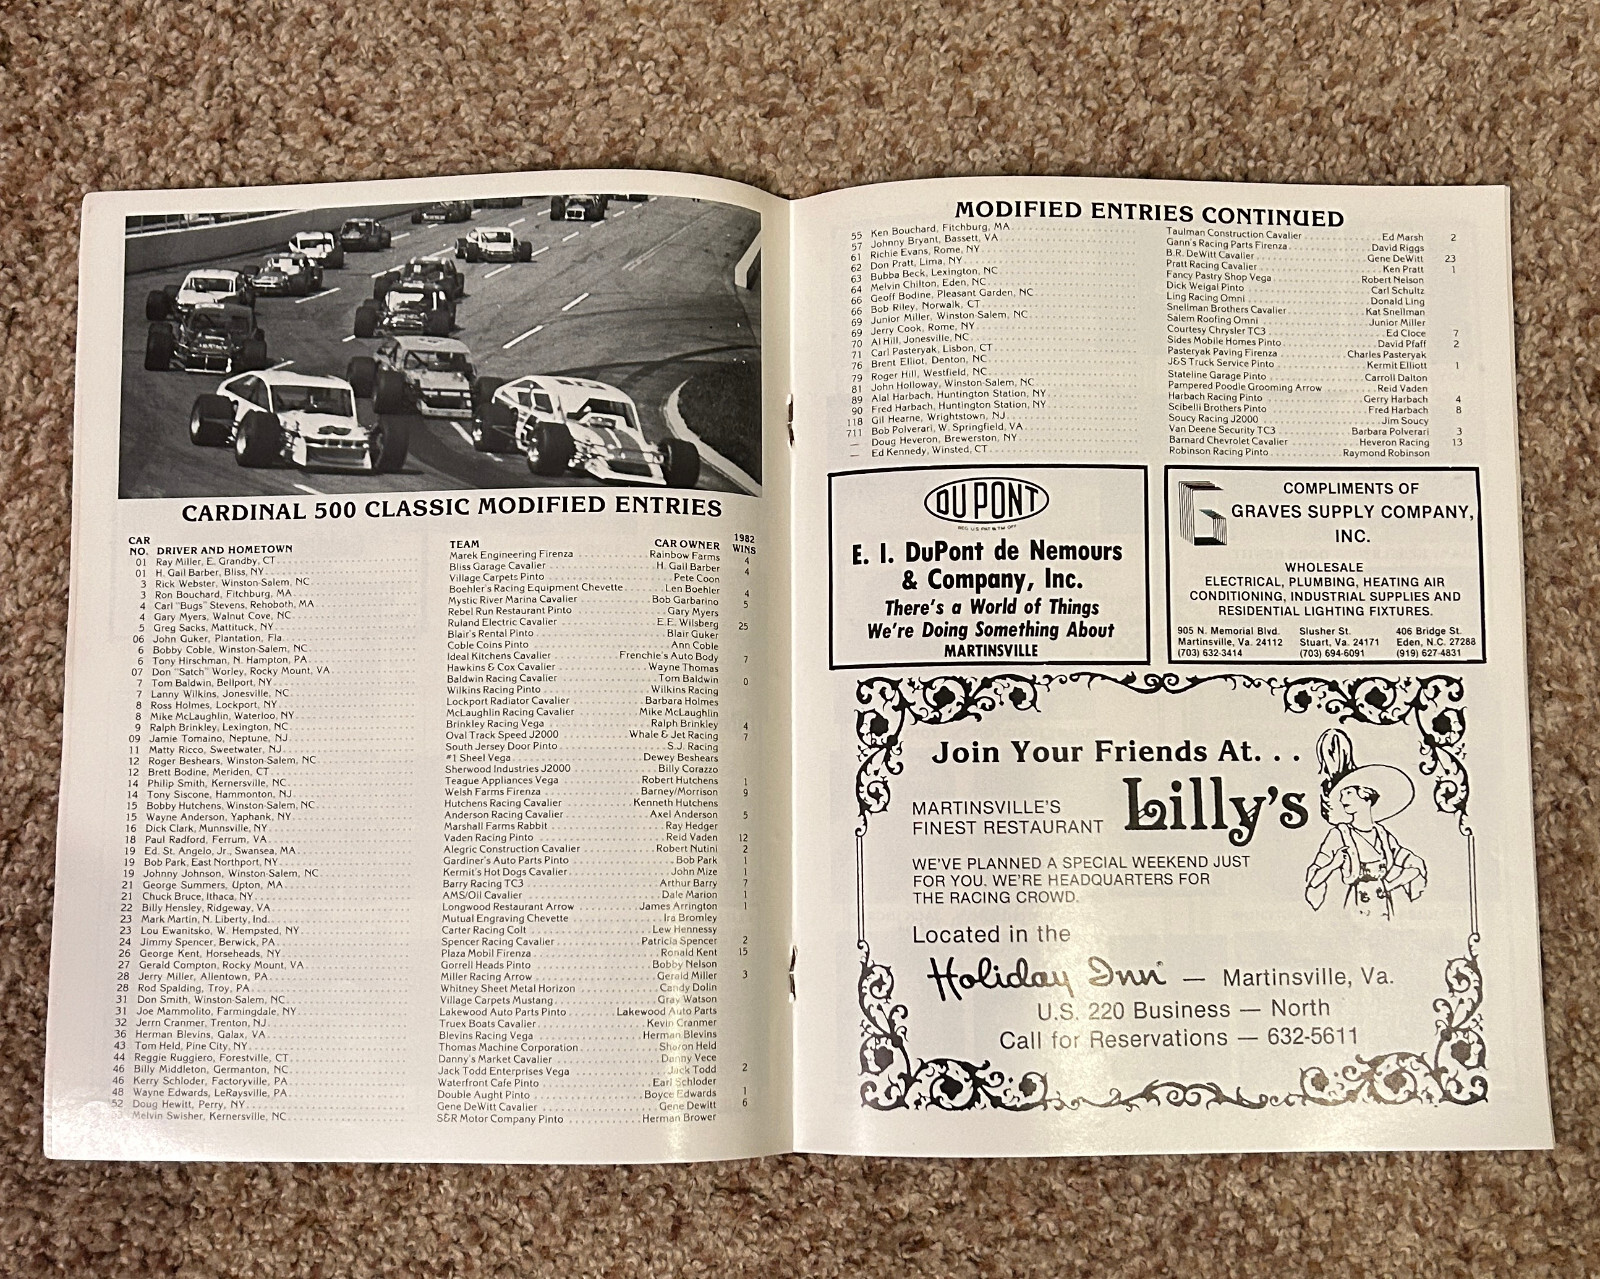 CARDINAL 500 CLASSIC MODIFIED ENTRIES
CAR NO. DRIVER AND HOMETOWN TEAM CAR OWNER 1982 WINS
01 Ray Miller, E. Grandby, CT Marek Engineering Firenza Rainbow Farms 4
01 H. Gail Barber, Bliss, NY Bliss Garage Cavalier H. Gail Barber 4
3 Rick Webster, Winston-Salem, NC Village Carpets Pinto Pete Coon
3 Ron Bouchard, Fitchburg, MA Boehler's Racing Equipment Chevette Len Boehler 4
4 Carl "Bugs" Stevens, Rehoboth, MA Mystic River Marina Cavalier Bob Garbarino 5
4 Gary Myers, Walnut Cove, NC Rebel Run Restaurant Pinto Gary Myers
5 Greg Sacks, Mattituck, NY Ruland Electric Cavalier E.E. Wilsberg 25
06 John Guker, Plantation, Fla. Blair's Rental Pinto Blair Guker
6 Bobby Coble, Winston-Salem, NC Coble Coins Pinto Ann Coble
6 Tony Hirschman, N. Hampton, PA Ideal Kitchens Cavalier Frenchie's Auto Body 7
07 Don "Satch" Worley, Rocky Mount, VA Hawkins & Cox Cavalier Wayne Thomas
7 Tom Baldwin, Bellport, NY Baldwin Racing Cavalier Tom Baldwin 0
7 Lanny Wilkins, Jonesville, NC Wilkins Racing Pinto Wilkins Racing
8 Ross Holmes, Lockport, NY Lockport Radiator Cavalier Barbara Holmes
8 Mike McLaughlin, Waterloo, NY McLaughlin Racing Cavalier Mike McLaughlin
9 Ralph Brinkley, Lexington, NC Brinkley Racing Vega Ralph Brinkley 4
09 Jamie Tomaino, Neptune, NJ Oval Track Speed J2000 Whale & Jet Racing 7
11 Matty Ricco, Sweetwater, NJ South Jersey Door Pinto S.J. Racing
12 Roger Beshears, Winston-Salem, NC #1 Sheel Vega Dewey Beshears
12 Brett Bodine, Meriden, CT Sherwood Industries J2000 Billy Corazzo
14 Philip Smith, Kernersville, NC Teague Appliances Vega Robert Hutchens 1
14 Tony Siscone, Hammonton, NJ Welsh Farms Firenza Barney/Morrison 9
15 Bobby Hutchens, Winston-Salem, NC Hutchens Racing Cavalier Kenneth Hutchens
15 Wayne Anderson, Yaphank, NY Anderson Racing Cavalier Axel Anderson 5
16 Dick Clark, Munnsville, NY Marshall Farms Rabbit Ray Hedger
18 Paul Radford, Ferrum, VA Vaden Racing Pinto Reid Vaden 12
19 Ed. St. Angelo, Jr., Swansea, MA Alegric Construction Cavalier Robert Nutini 2
19 Bob Park, East Northport, NY Gardiner's Auto Parts Pinto Bob Park 1
19 Johnny Johnson, Winston-Salem, NC Kermit's Hot Dogs Cavalier John Mize 1
21 George Summers, Upton, MA Barry Racing TC3 Arthur Barry 7
21 Chuck Bruce, Ithaca, NY AMS/Oil Cavalier Dale Marion 1
22 Billy Hensley, Ridgeway, VA Longwood Restaurant Arrow James Arrington 1
23 Mark Martin, N. Liberty, Ind. Mutual Engraving Chevette Ira Bromley
23 Lou Ewanitsko, W. Hempsted, NY Carter Racing Colt Lew Hennessy
24 Jimmy Spencer, Berwick, PA Spencer Racing Cavalier Patricia Spencer 2
26 George Kent, Horseheads, NY Plaza Mobil Firenza Ronald Kent 15
27 Gerald Compton, Rocky Mount, VA Gorrell Heads Pinto Bobby Nelson
28 Jerry Miller, Allentown, PA Miller Racing Arrow Gerald Miller 3
28 Rod Spalding, Troy, PA Whitney Sheet Metal Horizon Candy Dolin
31 Don Smith, Winston-Salem, NC Village Carpets Mustang Gray Watson
31 Joe Mammolito, Farmingdale, NY Lakewood Auto Parts Pinto Lakewood Auto Parts
32 Jerrn Cranmer, Trenton, NJ Truex Boats Cavalier Kevin Cranmer
36 Herman Blevins, Galax, VA Blevins Racing Vega Herman Blevins
43 Tom Held, Pine City, NY Thomas Machine Corporation Sharon Held
44 Reggie Ruggiero, Forestville, CT Danny's Market Cavalier Danny Vece
46 Billy Middleton, Germanton, NC Jack Todd Enterprises Vega Jack Todd 2
46 Kerry Schloder, Factoryville, PA Waterfront Cafe Pinto Earl Schloder
48 Wayne Edwards, LeRaysville, PA Double Aught Pinto Boyce Edwards 1
52 Doug Hewitt, Perry, NY Gene DeWitt Cavalier Gene Dewitt 6
Melvin Swisher, Kernersville, NC S&R Motor Company Pinto Herman Brower
MODIFIED ENTRIES CONTINUED
55 Ken Bouchard, Fitchburg, MA Taulman Construction Cavalier Ed Marsh 2
57 Johnny Bryant, Bassett, VA Gann's Racing Parts Firenza David Riggs
61 Richie Evans, Rome, NY B.R. DeWitt Cavalier Gene DeWitt 23
62 Don Pratt, Lima, NY Pratt Racing Cavalier Ken Pratt 1
63 Bubba Beck, Lexington, NC Fancy Pastry Shop Vega Robert Nelson
64 Melvin Chilton, Eden, NC Dick Weigal Pinto Carl Schultz
66 Geoff Bodine, Pleasant Garden, NC Ling Racing Omni Donald Ling
66 Bob Riley, Norwalk, CT Snellman Brothers Cavalier Kat Snellman
69 Junior Miller, Winston-Salem, NC Salem Roofing Omni Junior Miller
69 Jerry Cook, Rome, NY Courtesy Chrysler TC3 Ed Cloce 7
70 Al Hill, Jonesville, NC Sides Mobile Homes Pinto David Pfaff 2
71 Carl Pasteryak, Lisbon, CT Pasteryak Paving Firenza Charles Pasteryak
76 Brent Elliot, Denton, NC J&S Truck Service Pinto Kermit Elliott 1
79 Roger Hill, Westfield, NC Stateline Garage Pinto Carroll Dalton
81 John Holloway, Winston-Salem, NC Pampered Poodle Grooming Arrow Reid Vaden
89 Alal Harbach, Huntington Station, NY Harbach Racing Pinto Gerry Harbach 4
90 Fred Harbach, Huntington Station, NY Scibelli Brothers Pinto Fred Harbach 8
118 Gil Hearne, Wrightstown, NJ Soucy Racing J2000 Jim Soucy
711 Bob Polverari, W. Springfield, VA Van Deene Security TC3 Barbara Polverari 3
— Doug Heveron, Brewerston, NY Barnard Chevrolet Cavalier Heveron Racing 13
— Ed Kennedy, Winsted, CT Robinson Racing Pinto Raymond Robinson
DU PONT
REG. U.S. PAT. & TM. OFF.
E. I. DuPont de Nemours
& Company, Inc.
There's a World of Things
We're Doing Something About
MARTINSVILLE
COMPLIMENTS OF
GRAVES SUPPLY COMPANY,
INC.
WHOLESALE
ELECTRICAL, PLUMBING, HEATING AIR
CONDITIONING, INDUSTRIAL SUPPLIES AND
RESIDENTIAL LIGHTING FIXTURES.
905 N. Memorial Blvd. Slusher St. 406 Bridge St.
Martinsville, Va. 24112 Stuart, Va. 24171 Eden, N.C. 27288
(703) 632-3414 (703) 694-6091 (919) 627-4831
Join Your Friends At. . .
MARTINSVILLE'S
FINEST RESTAURANT
Lilly's
WE'VE PLANNED A SPECIAL WEEKEND JUST
FOR YOU. WE'RE HEADQUARTERS FOR
THE RACING CROWD.
Located in the
Holiday Inn — Martinsville, Va.
U.S. 220 Business — North
Call for Reservations — 632-5611